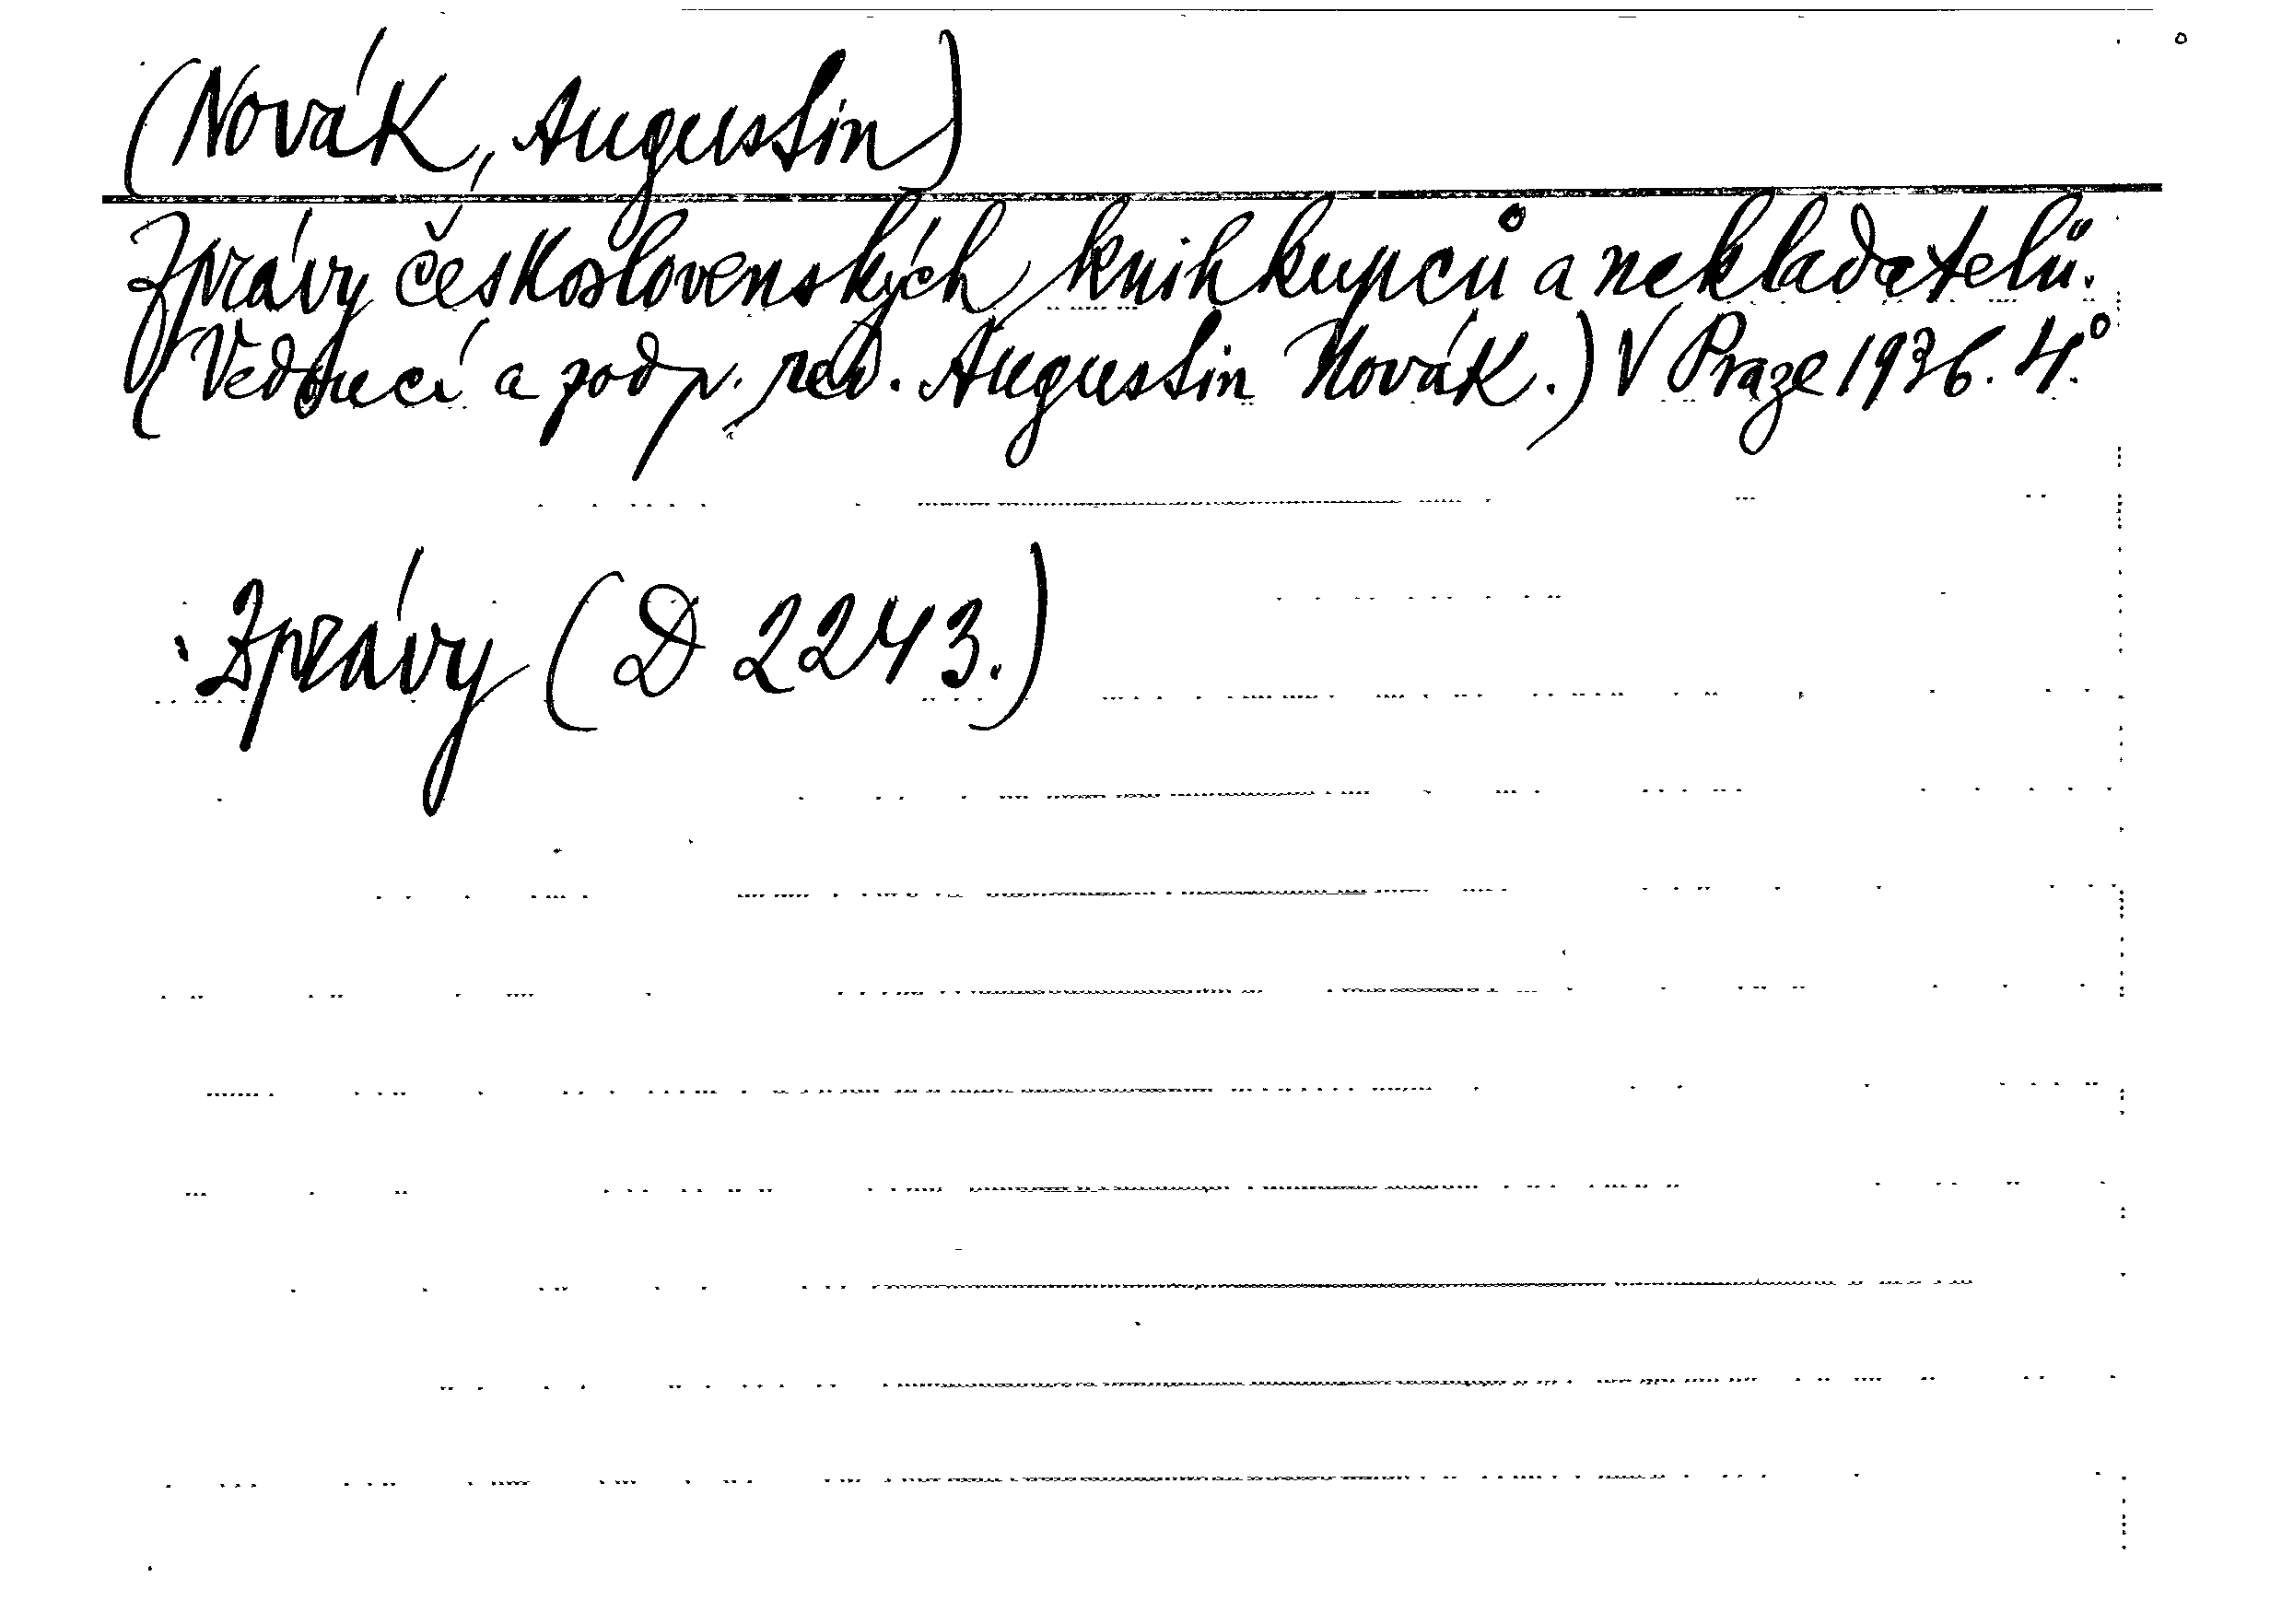 (Novák, Augustin)
Zprávy československých knihkupců a nakladatelů.
(Vedoucí a zodp. red. Augustin Novák.) V Praze 1936. 4.°
Zprávy (D 2243.)